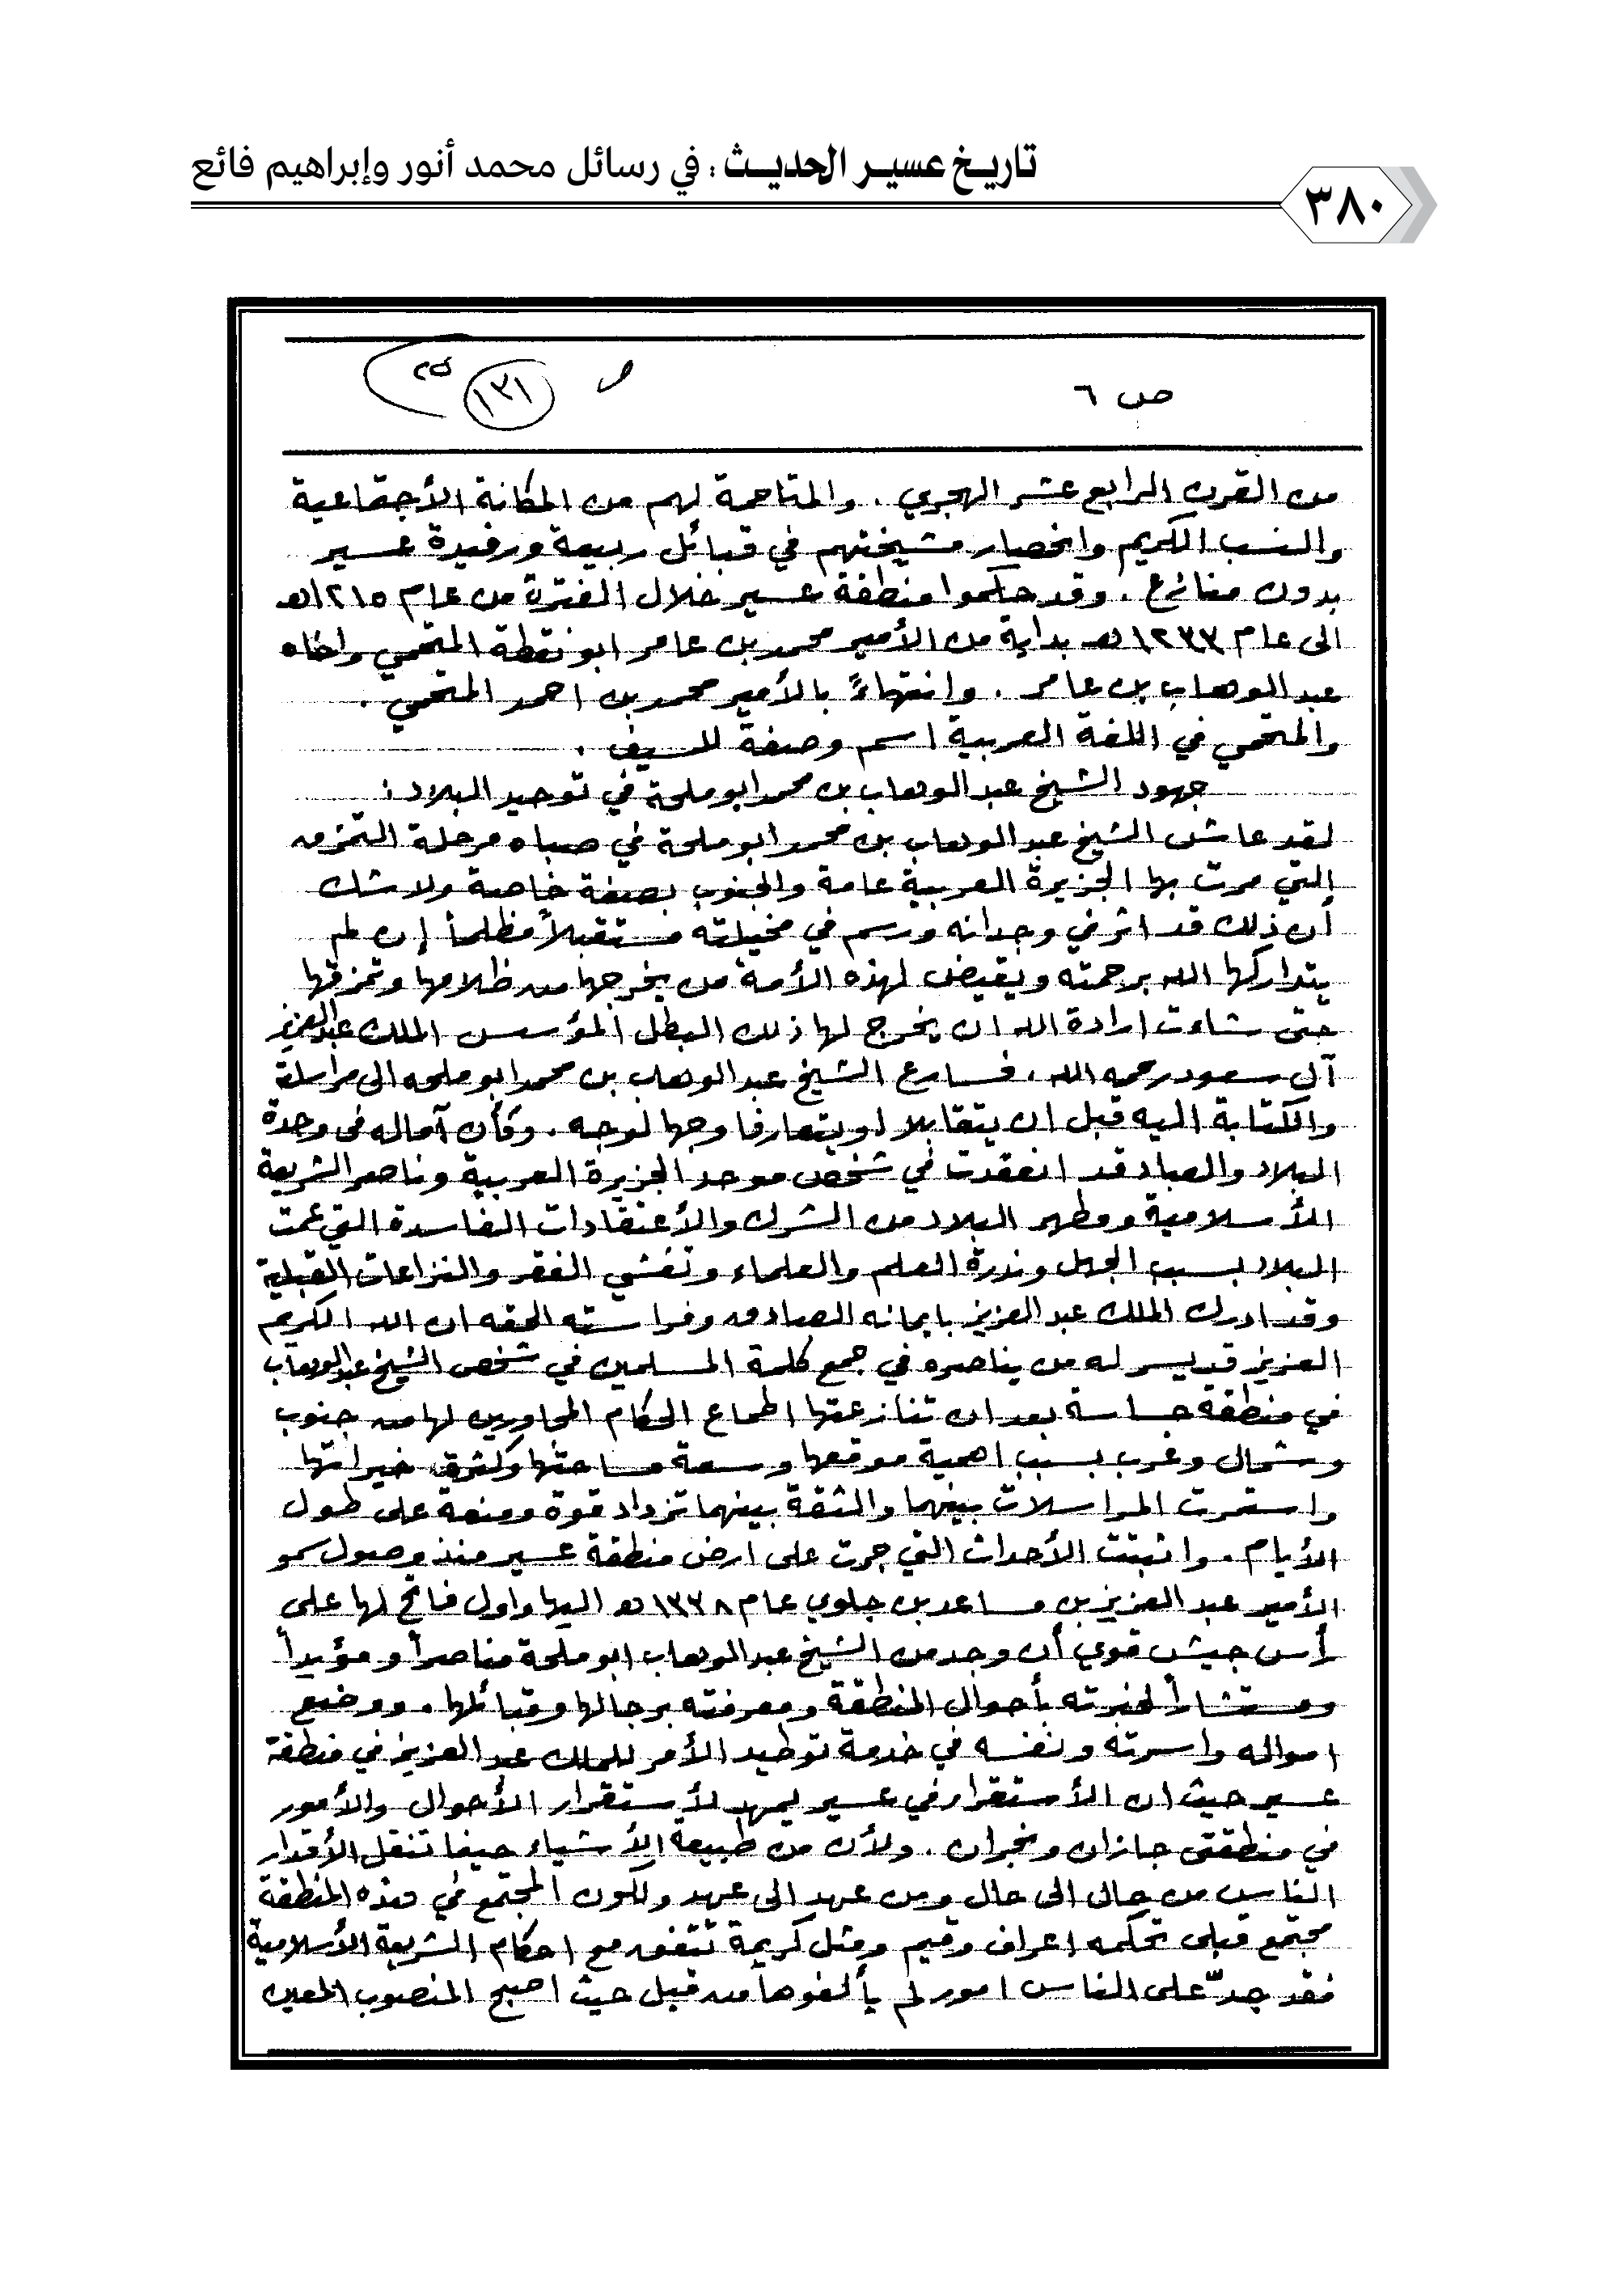 تاريخ عسير الحديث : في رسائل محمد أنور وإبراهيم فائع
٣٨٠
ص ٦
١٣١
من القرن الرابع عشر الهجري . والمتاحمة لهم من المكانة الأجتماعية
والنسب الكريم وانحصار مشيختهم في قبائل ربيعة ورفيدة عسير
بدون منازع . وقد حكموا منطقة عسير خلال الفترة من عام ١٢١٥هـ
الى عام ١٢٣٣هـ بداية من الأمير محمد بن عامر ابو نقطة المتحمي واخاه
عبد الوهاب بن عامر . وانتهاءً بالأمير محمد بن احمد المتحمي .
والمتحمي في اللغة العربية اسم وصفة للسيف .
جهود الشيخ عبد الوهاب بن محمد ابو ملحة في توحيد البلاد :
لقد عاش الشيخ عبد الوهاب بن محمد ابو ملحة في صباه مرحلة التمزق
التي مرت بها الجزيرة العربية عامة والجنوب بصفة خاصة ولا شك
أن ذلك قد اثر في وجدانه ورسم في مخيلته مستقبلاً مظلماً إن لم
يتداركها الله برحمته ويقيض لهذه الأمة من يخرجها من ظلامها وتمزقها
حتى شاءت ارادة الله ان يخرج لها ذلك البطل المؤسس الملك عبد العزيز
آل سعود رحمه الله . فسارع الشيخ عبد الوهاب بن محمد ابو ملحه الى مراسلة
والكتابة اليه قبل ان يتقابلا او يتعارفا وجها لوجه . وكأن آماله في وحدة
البلاد والعباد قد انعقدت في شخص موحد الجزيرة العربية وناصر الشريعة
الأسلامية ومطهر البلاد من الشرك والأعتقادات الفاسدة التي عمت
البلاد بسبب الجهل وندرة العلم والعلماء وتفشي الفقر والنزاعات القبلية
وقد ادرك الملك عبد العزيز بايمانه الصادق وفراسته الحقه ان الله الكريم
العزيز قد يسر له من يناصره في جمع كلمة المسلمين في شخص الشيخ عبد الوهاب
في منطقة حساسة بعد ان تنازعتها اطماع الحكام المجاورين لها من جنوب
وشمال وغرب بسبب اهمية موقعها وسعة مساحتها وكثرة خيراتها
واستمرت المراسلات بينهما والثقة بينهما تزداد قوة ومنعة على طول
الأيام . واثبتت الأحداث التي جرت على ارض منطقة عسير منذ وصول سمو
الأمير عبد العزيز بن مساعد بن جلوي عام ١٣٣٨هـ اليها واول فاتح لها على
رأس جيش قوي أن وجد من الشيخ عبد الوهاب ابو ملحة مناصراً ومؤيداً
ومستشاراً لخبرته بأحوال المنطقة ومعرفته برجالها وقبائلها . ووضع
امواله واسرته ونفسه في خدمة توطيد الأمر للملك عبد العزيز في منطقة
عسير حيث ان الأستقرار في عسير ليمهد لأستقرار الأحوال والأمور
في منطقتي جازان ونجران . ولأن من طبيعة الأشياء حينما تنقل الأقدار
الناس من حال الى حال ومن عهد الى عهد ولكون المجتمع في هذه المنطقة
مجتمع قبلي تحكمه اعراف وقيم ومثل كريمة تتفق مع احكام الشريعة الأسلامية
فقد جدّ على الناس امور لم يألفوها من قبل حيث اصبح المنصوب المعين